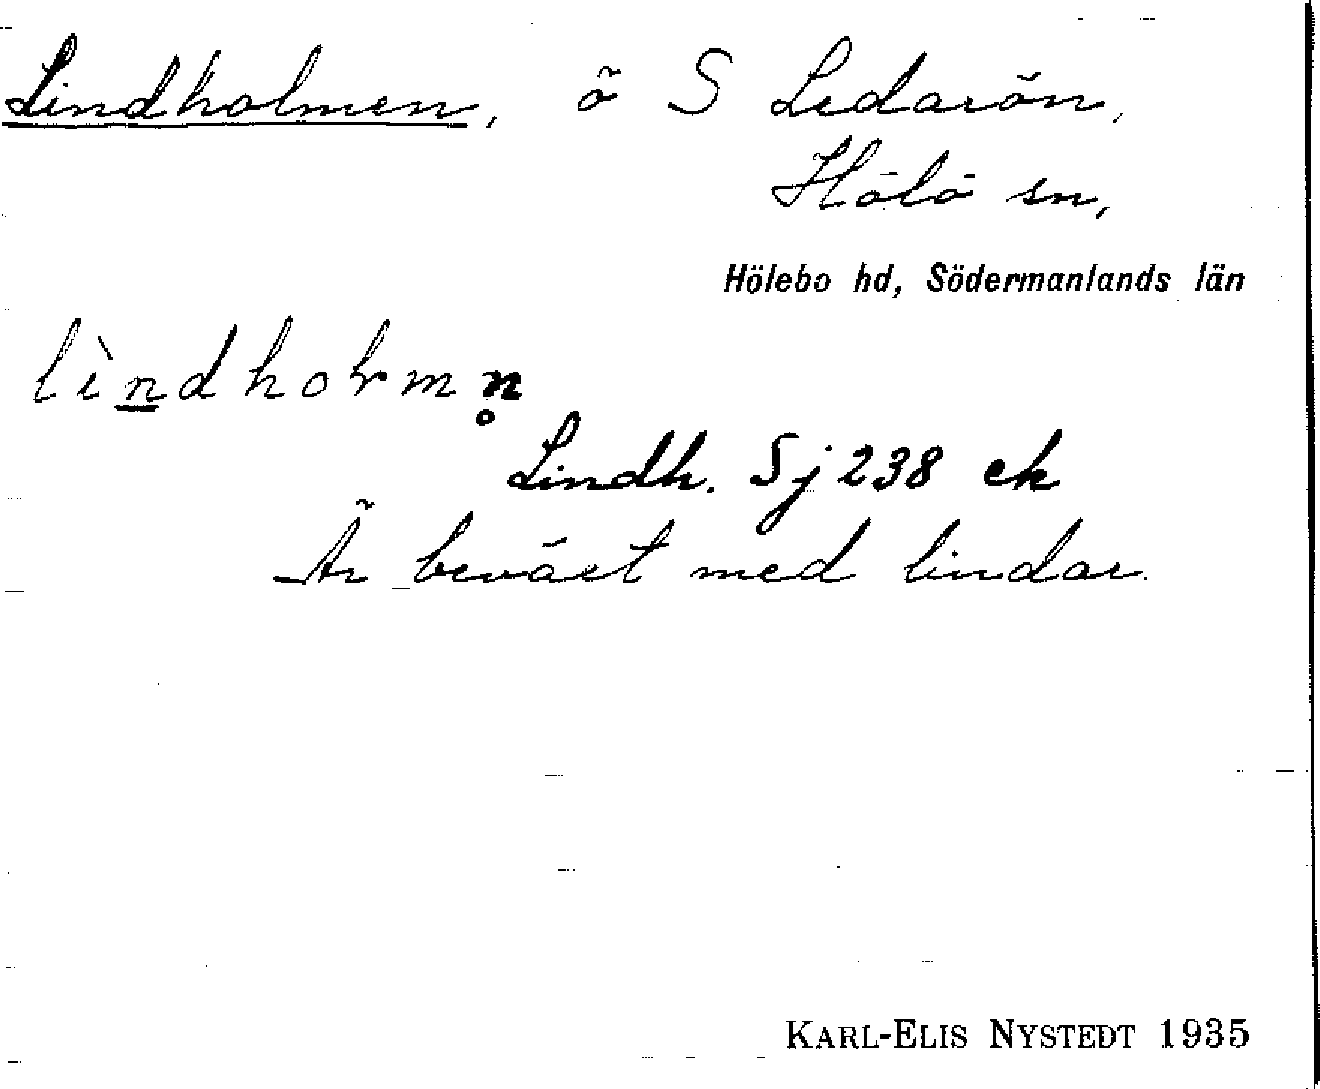 Lindholmen, ö S Ledarön,
Hölö sn,
Hölebo hd, Södermanlands län
lìn̲dholmn̥
Lindh. Sj 238 ek
Är beväxt med lindar.
KARL-ELIS NYSTEDT 1935